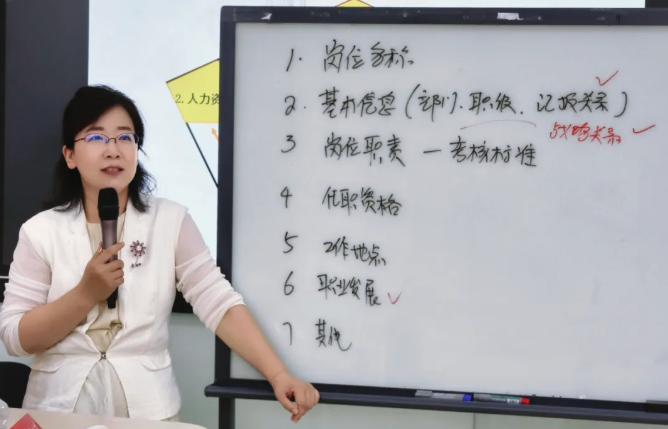 2.人力资
1. 岗位名称
2. 基本信息(部门、职级、汇报关系)
协作关系
3 岗位职责 — 考核标准
4 任职资格
5 工作地点
6 职业发展
7 其他